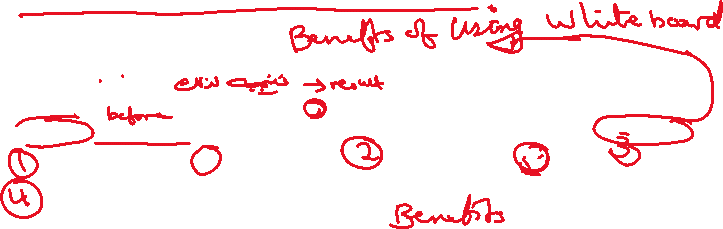 Benefits of Using Whiteboard
نتائج نتیجہ → result
before
1 2 3
4
Benefits